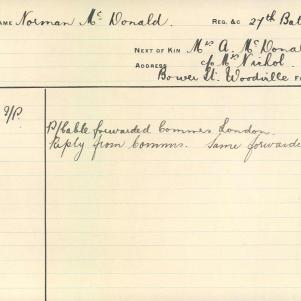 AME Norman Mc Donald. REG. &C 27th Bat
NEXT OF KIN Mrs A. McDonal
ADDRESS c/o Mrs Nichol.
Bower St. Woodville
R/P. P/Cable forwarded Commrs London.
Reply from Comms. Same forwarde